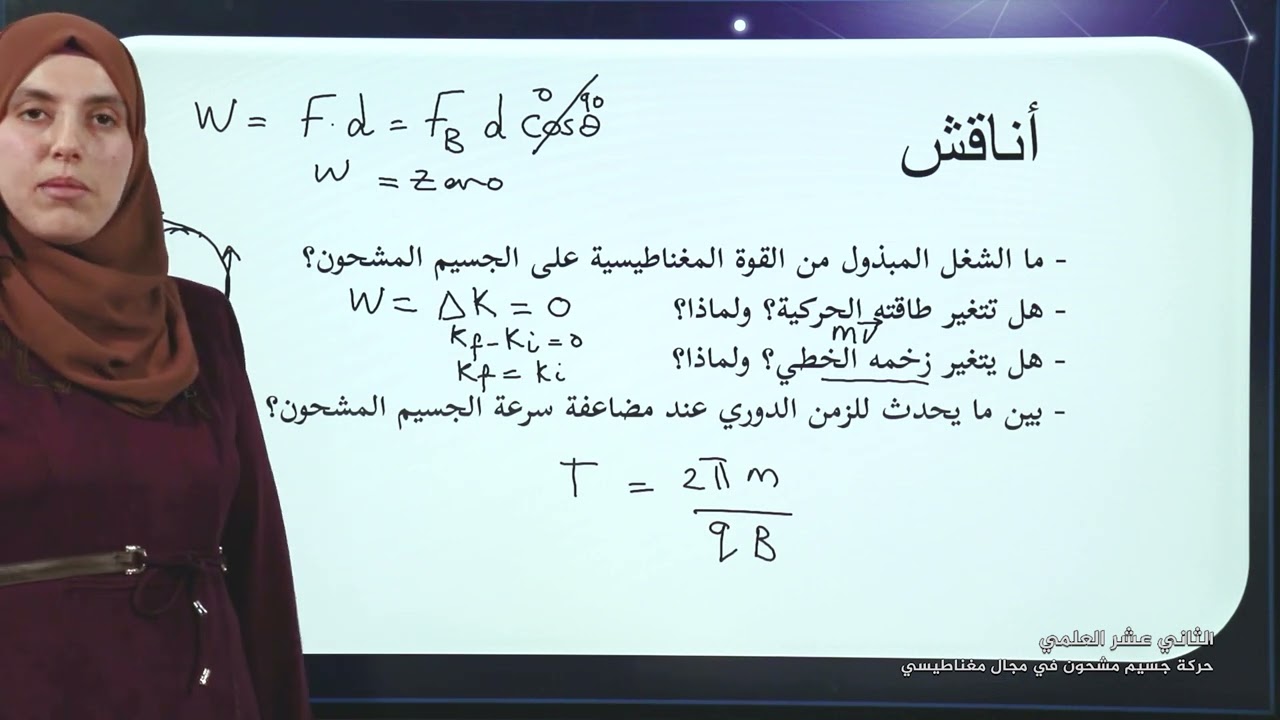 W = F . d = F_B d cosθ 0 90
أناقش
W = Zero
- ما الشغل المبذول من القوة المغناطيسية على الجسيم المشحون؟
- هل تتغير طاقته الحركية؟ ولماذا؟ W = ΔK = 0
mv
K_f - K_i = 0
- هل يتغير زخمه الخطي؟ ولماذا؟
K_f = K_i
- بين ما يحدث للزمن الدوري عند مضاعفة سرعة الجسيم المشحون؟
T = 2π m
q B
الثاني عشر العلمي
حركة جسيم مشحون في مجال مغناطيسي